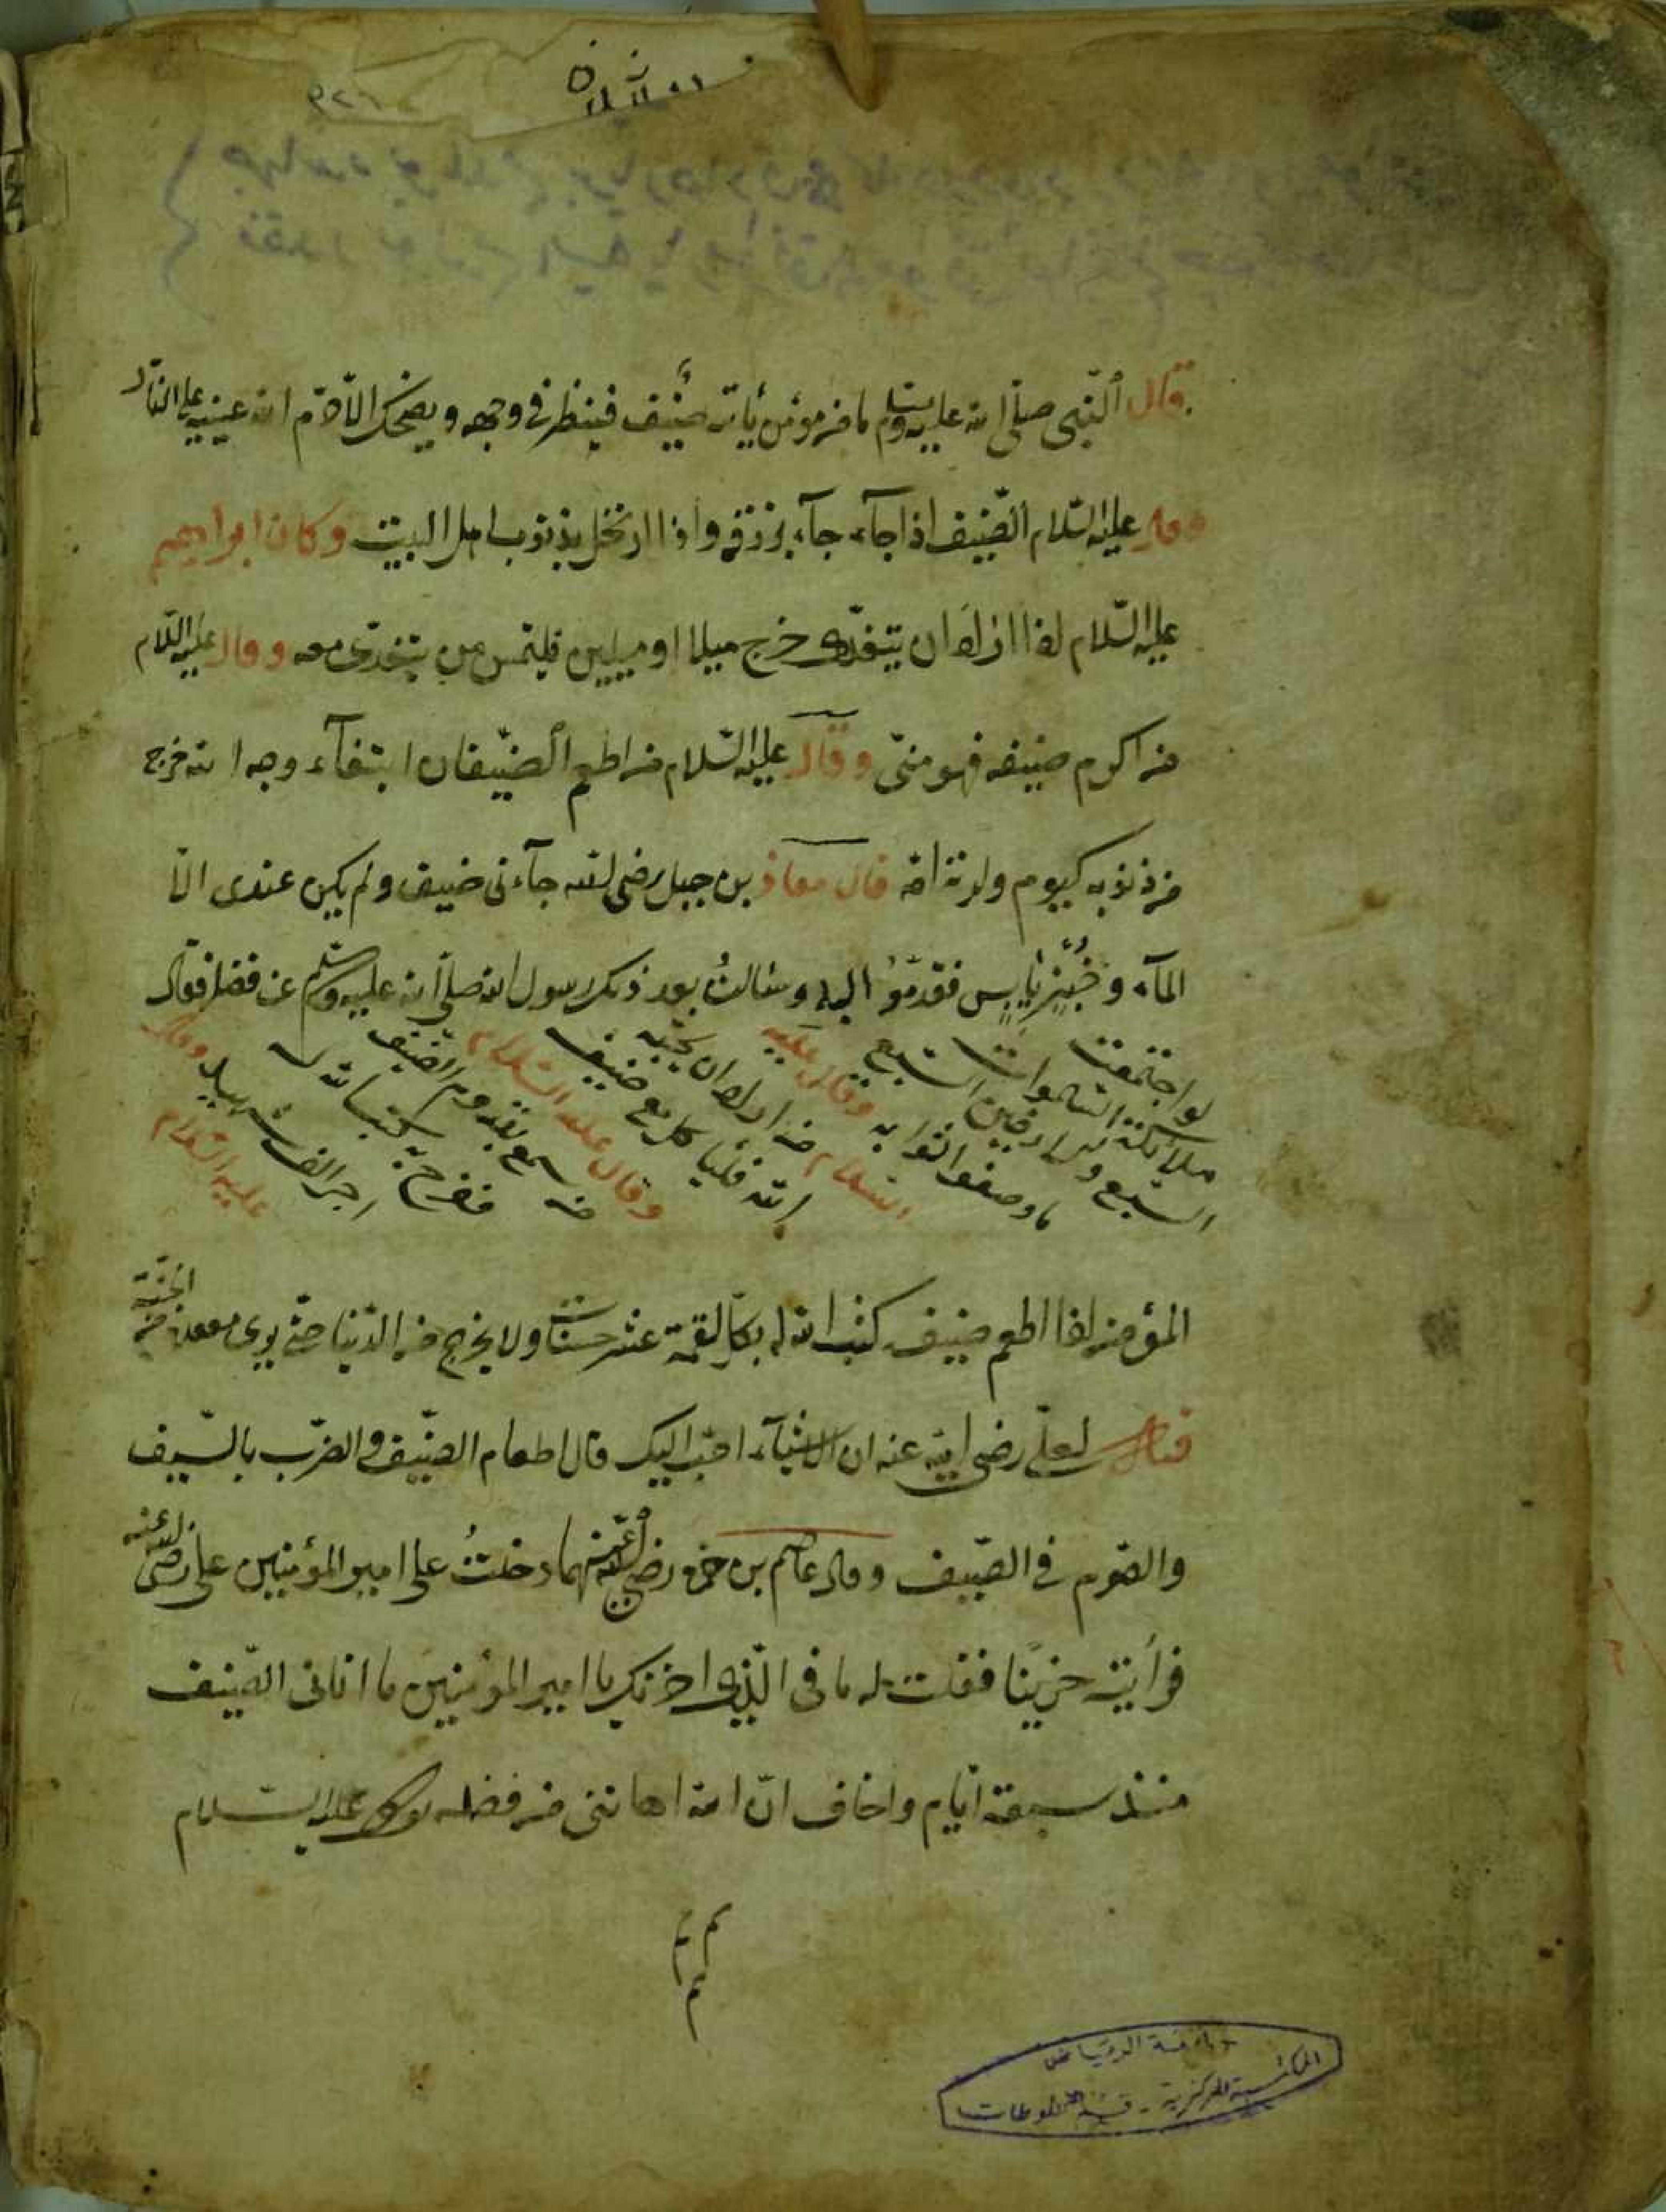 قال النّبى صلّى الله عليه وسلم ما من مؤمن يأت ضيف فينظر فى وجهه ويضحك الّا حرّم الله عينيه على النّار
وقال عليه السّلام الضّيف اذا جآء جآء برزقه واذا ارتحل بذنوب اهل البيت وكان ابراهيم
عليه السّلام اذا اراد ان يتغدّى خرج ميلا او ميلين فيلتمس من يتغدّى معه وقال عليه السّلام
من اكرم ضيفه فهو منّى وقال عليه السّلام من اطعم الضّيفان ابتغآء وجه الله خرج
من ذنوبه كيوم ولدته امه قال معاذ بن جبل رضى الله جآءنى ضيف ولم يكن عندى الّا
المآء وخُبزٌ يابس فقدمّوُا اليه وسئالتُ بعد ذلك رسول الله صلّى الله عليه وسلّم عن فضله فقال
لو اجتمعت
ملائكة السّموات
السّبع والارضين السّبع
ما وصفوا ثوابه وقال عليه
السّلام من اراد ان يحبّه
الله فليأكل مع ضيف
وقال عليه السّلام
من سمع بقدوم الضّيف
ففرح به كتب الله له
اجر الف شهيد وقال
عليه السّلام
المؤمن اذا اطعم ضيف كتب الله له بكلّ لقمة عشر حسنات ولا يخرج من الدّنيا حتّى يرى مقعده من الجنّة
قال لعلىّ رضى الله عنه ان الاشيآء احبّ اليك قال اطعام الضّيف والضرّب بالسّيف
والصّوم فى الصّيف وقال عاصم بن حمزه رضى الله عنهما دخلتُ على امير المؤمنين على رضى الله عنه
فرأيته حزينًا فقلت له ما فى الّذى احزنك يا امير المؤمنين ما اتانى الضّيف
منذ سبعة ايّام واخاف انّ الله اهانتنى من فضله عليه السّلام
جامعة الرياض
المكتبة المركزية - قسم المخطوطات